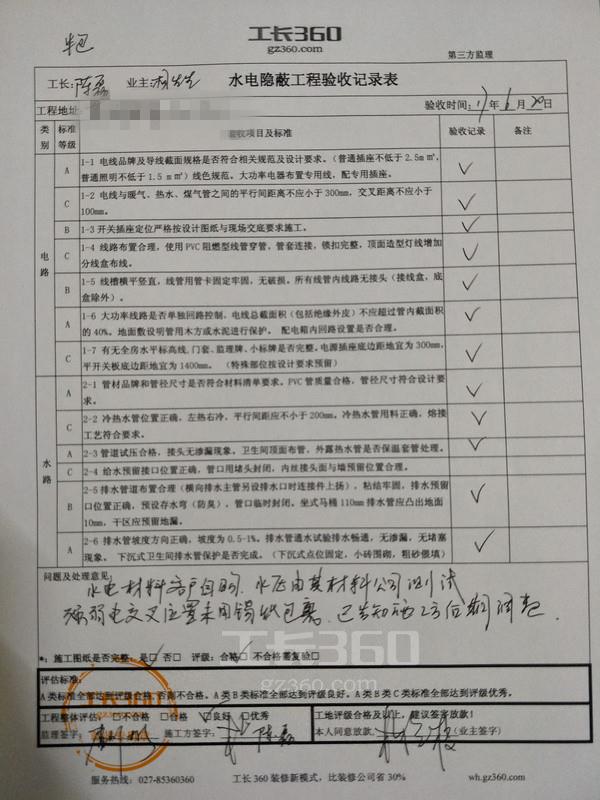 半包
工长360
gz360.com
第三方监理
工长:陈磊 业主: 水电隐蔽工程验收记录表
工程地址: 验收时间:17年6月20日
类别 标准等级 验收项目及标准 验收记录 备注
电路
A 1-1 电线品牌及导线截面规格是否符合相关规范及设计要求。(普通插座不低于2.5m㎡,
普通照明不低于1.5 m㎡)线色规范。大功率电器布置专用线,配专用插座。 ✓
C 1-2 电线与暖气、热水、煤气管之间的平行间距离不应小于300mm,交叉距离不应小于
100mm。 ✓
B 1-3 开关插座定位严格按设计图纸与现场交底要求施工。 ✓
C 1-4 线路布置合理,使用PVC阻燃型线管穿管,管套连接,锁扣完整,顶面造型灯线增加
分线盒布线。 ✓
B 1-5 线槽横平竖直,线管用管卡固定牢固,无破损。所有线管内线路无接头(接线盒,底
盒除外)。 ✓
A 1-6 大功率线路是否单独回路控制,电线总截面积(包括绝缘外皮)不应超过管内截面积
的40%。地面敷设明管用木方或水泥进行保护。 配电箱内回路设置是否合理。 ✓
C 1-7 有无全房水平标高线,门套、监理牌、小标牌是否完整。电源插座底边距地宜为300mm,
平开关板底边距地宜为1400mm。 (特殊部位按设计要求预留) ✓
水路
A 2-1 管材品牌和管径尺寸是否符合材料清单要求。PVC管质量合格,管径尺寸符合设计要
求。 ✓
C 2-2 冷热水管位置正确,左热右冷,平行间距应不小于200mm。冷热水管用料正确,熔接
工艺符合要求。 ✓
A 2-3 管道试压合格,接头无渗漏现象。卫生间顶面布管,外露热水管是否保温套管处理。 ✓
C 2-4 给水预留接口位置正确,管口用堵头封闭,内丝接头面与墙预留位置合理。
B 2-5 排水管道布置合理(横向排水主管另设排水口时连接件上扬),粘结牢固,排水预留
口位置正确,预设存水弯(防臭),管口临时封闭。坐式马桶110mm排水管应凸出地面
10mm,干区应预留地漏。 ✓
A 2-6 排水管坡度方向正确,坡度为0.5-1%。排水管通水试验排水畅通,无渗漏,无堵塞
现象。 下沉式卫生间排水管保护是否完成。(下沉式点位固定,小砖围砌,粗砂偎填) ✓
问题及处理意见:
水电材料客户自购,水压由其材料公司测试
强弱电交叉位置未用锡纸包裹,已告知
工长360
gz360.com
*: 施工图纸是否完整:是☑ 否□ 评级:合格☑ 不合格需复验□
评估标准:
A类标准全部达到评级合格,否则不合格。A类B类标准全部达到评级良好。A类B类C类标准全部达到评级优秀。
工程整体评估: □不合格 □合格 ☑良好 □优秀 工地评级合格及以上,建议签字放款!
监理签字: 施工方签字: 陈磊 本人同意放款, (业主签字)
服务热线:027-85360360 工长360装修新模式,比装修公司省30% wh.gz360.com